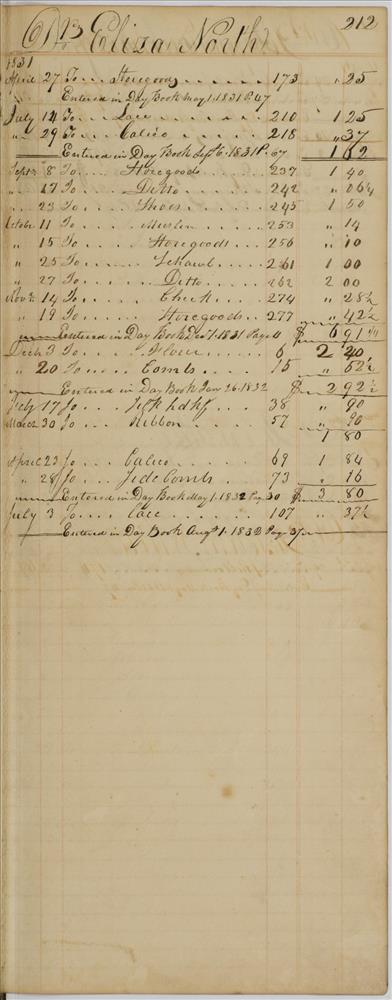 212
Eliza North
1831
April 27 To Storegoods 173 " 25
Entered in Day Book May 1. 1831 P. 47
July 14 To Lace 210 1 25
" 29 To Calico 218 " 37
Entered in Day Book Sept 6. 1831 P. 67 1 62
Sept 8 To Storegoods 237 1 40
" 17 To Ditto 242 " 06¼
" 23 To Shoes 245 1 50
October 11 To Muslin 253 " 14
" 15 To Storegoods 256 " 10
" 25 To 261 1 00
" 27 To Ditto 262 2 00
Nov 14 To Check 274 " 28½
" 19 To Storegoods 277 " 42½
Entered in Day Book Dec 1. 1831 Page $ 6 91
Decb 3 To 6 2 40
" 20 To Combs 15 " 52½
Entered in Day Book Jan 26. 1832 $ 2 92½
Feby 17 To Silk hdkf 38 " 90
March 30 To Ribbon 57 " 90
1 80
April 23 To Calico 69 1 84
" 28 To Side Combs 73 " 16
Entered in Day Book May 1. 1832 Pag 30 $ 3 80
July 3 To Lace 107 " 37½
Entered in Day Book Augt 1. 1832 Page